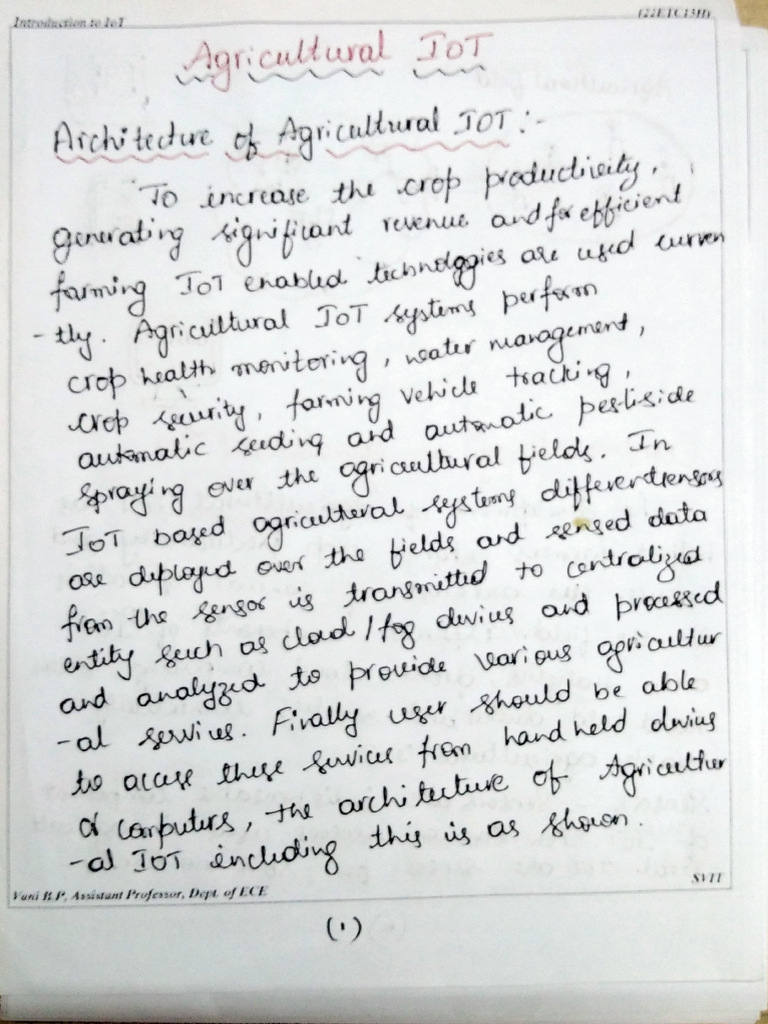 Introduction to IoT (22ETC15H)
Agricultural IoT
Architecture of Agricultural IOT :-
To increase the crop productivity,
generating significant revenue and for efficient
farming IoT enabled technologies are used curren
-tly. Agricultural IoT systems perform
crop health monitoring, water management,
crop security, farming vehicle tracking,
automatic seeding and automatic pestiside
spraying over the agricultural fields. In
IoT based agricultural systems different sensors
are deployed over the fields and sensed data
from the sensor is transmitted to centralized
entity such as cloud/fog devices and processed
and analyzed to provide various agricultur
-al services. Finally user should be able
to access these services from handheld devices
or computers, the architecture of Agricultur
-al IOT including this is as shown.
Vani B.P, Assistant Professor, Dept. of ECE SVIT
(1)